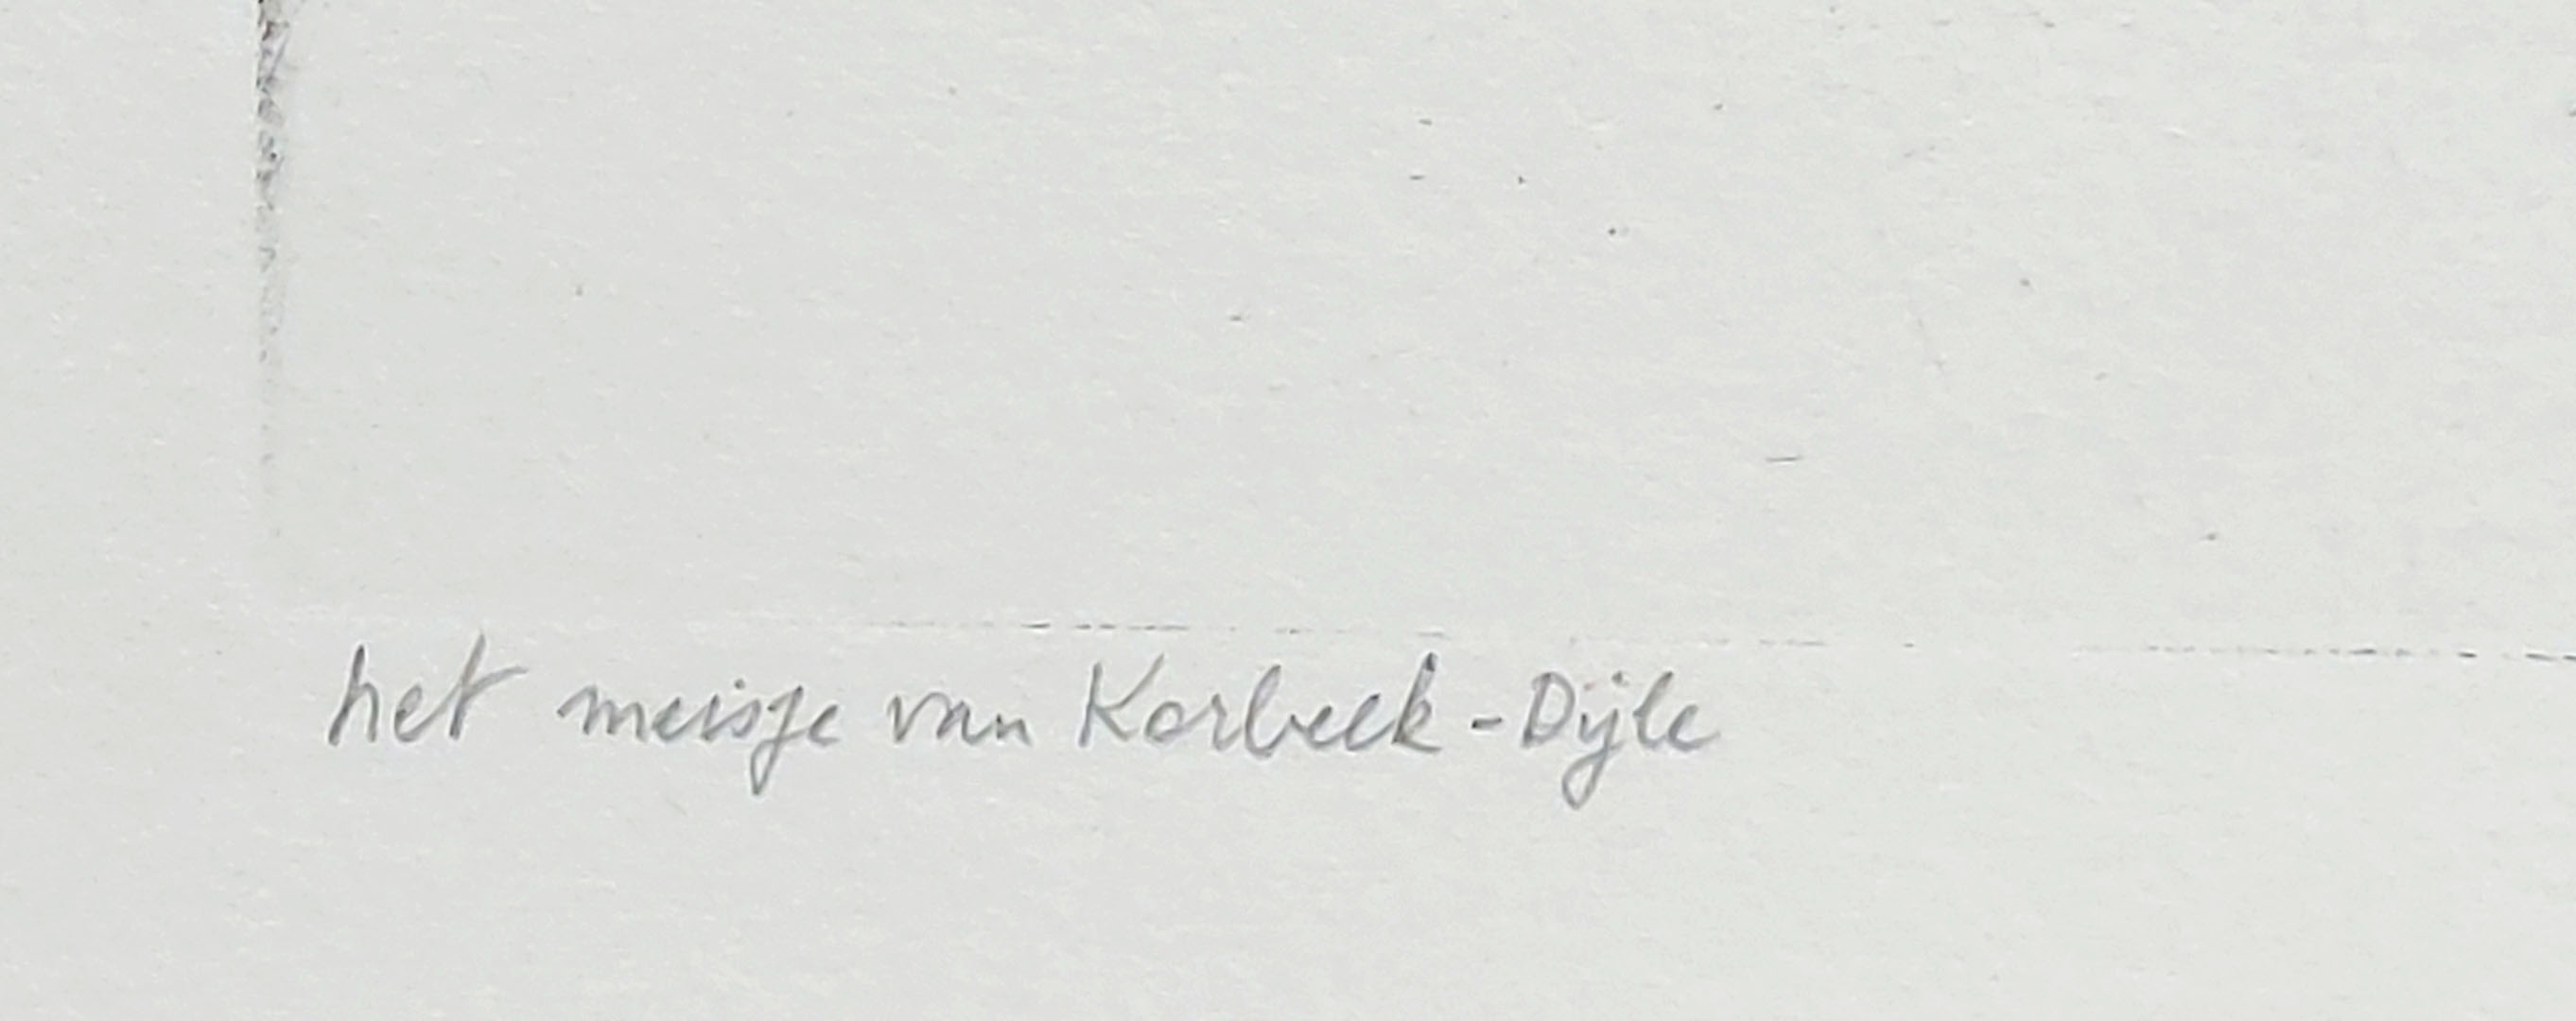 het meisje van Korbeek-Dijle